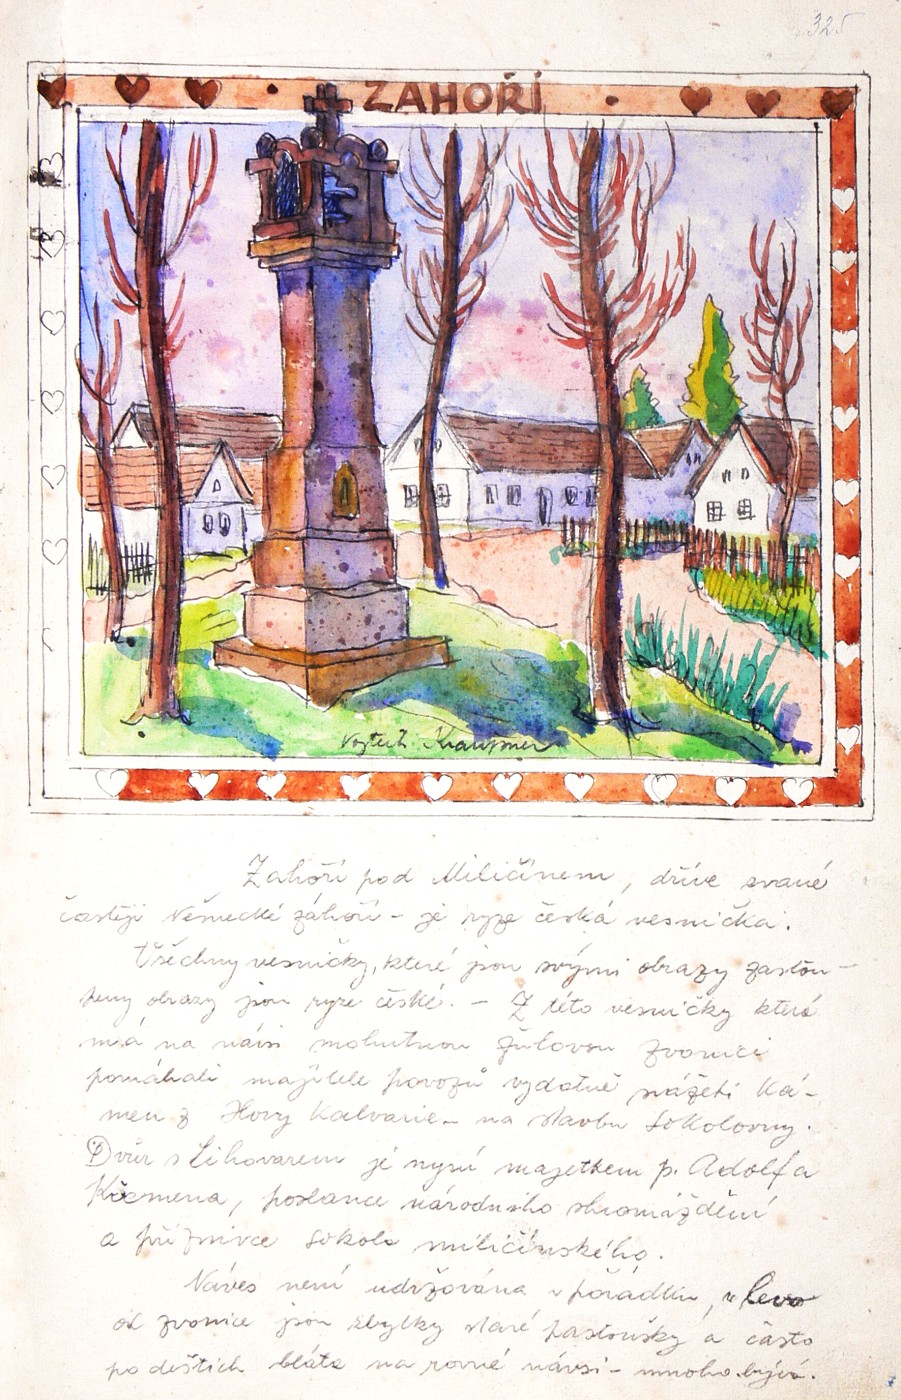 325
ZAHOŘÍ
Vojtěch Kraupner
Zahoří pod Miličínem, dříve zvané
častěji Něšnecké záhoří - je ryze česká vesnička.
Všechny vesničky, které jsou svými obrazy zastou-
peny obrazy jsou ryze české. - Z této vesničky která
má na návsi mohutnou žulovou zvonici
pomáhali majitele povozů vydatně svážeti Ká-
men z Hory Kalvarie - na stavbu Sokolovny.
Dvůr s Lihovarem je nyní majetkem p. Adolfa
Křemena, poslance národního shromáždění
a příznivce Sokola miličínského.
Náves není udržována v pořádku, v levo
od zvonice jsou zbytky staré pastoušky a často
po deštích bláta na rovné návsi - mnoho bývá.